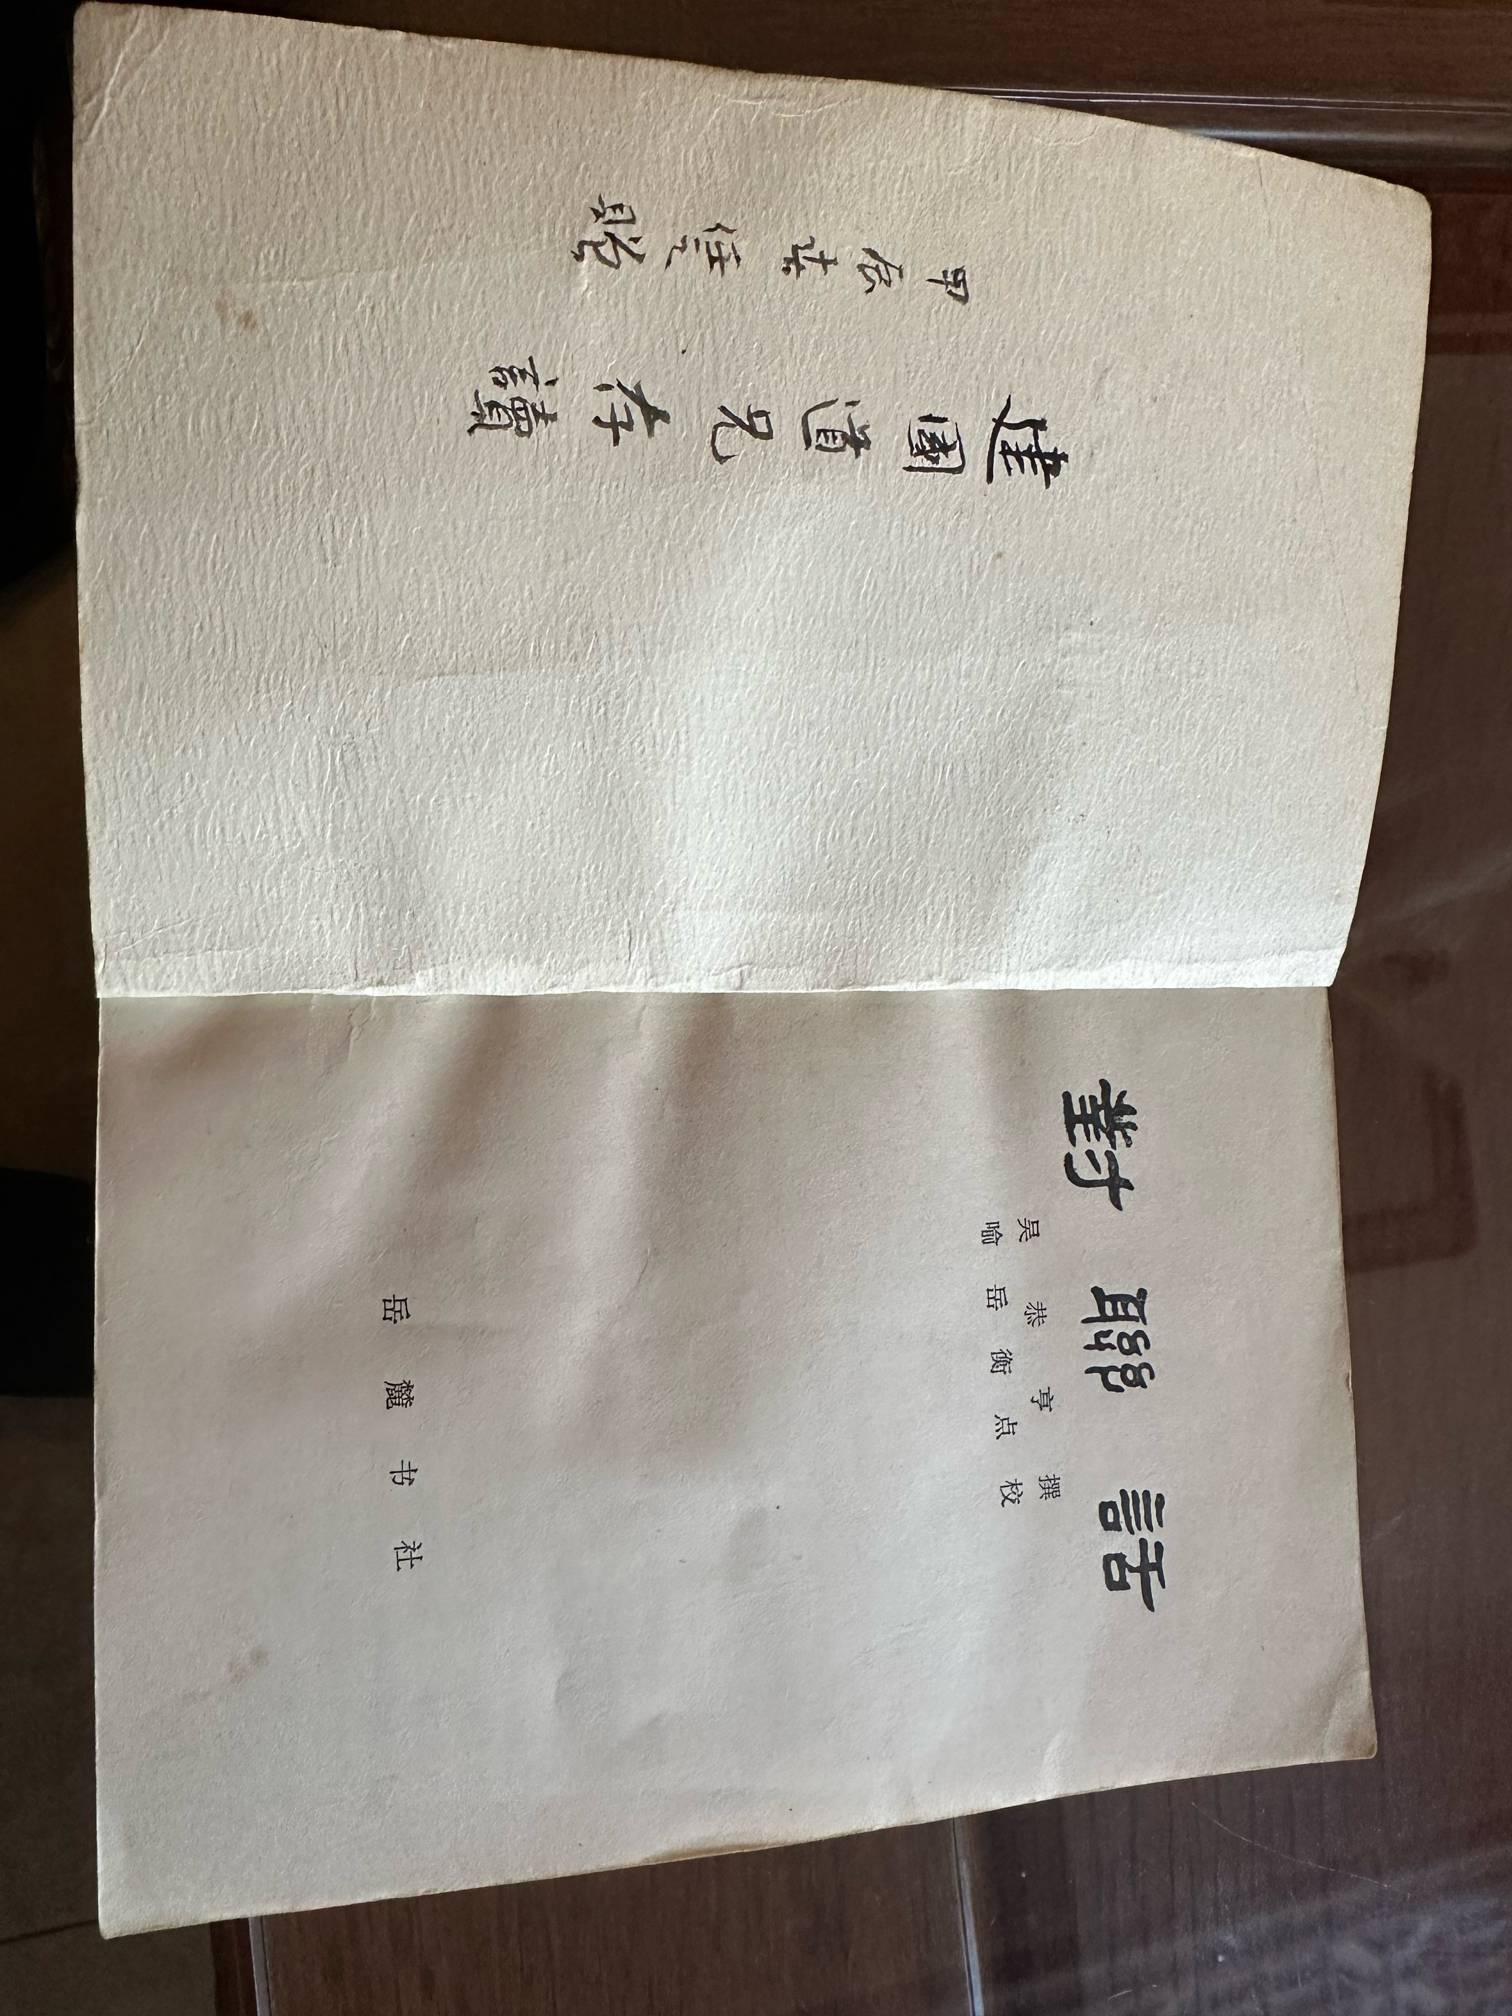 建國道兄存讀
甲辰
贈
對聯話
吴恭亨撰
喻岳衡点校
岳麓书社